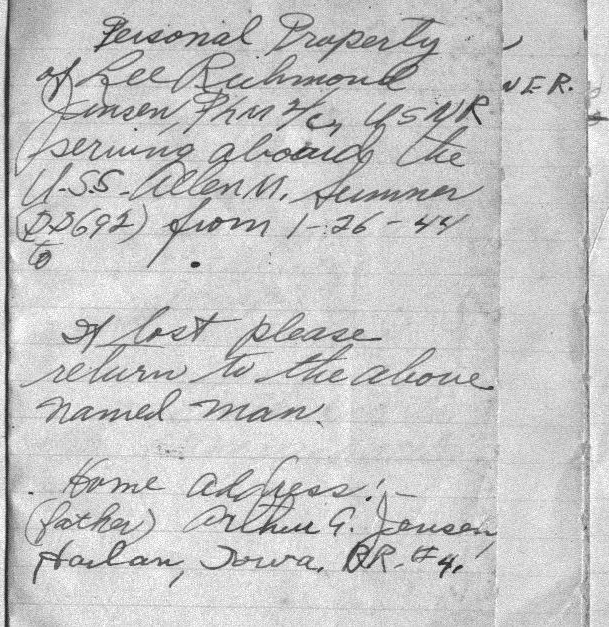 Personal Property
of Lee Richmond
Jensen, PhM 2/c, USNR
serving aboard the
U.S.S. Allen M. Sumner
(DD692) from 1-26-44
to
If lost please
return to the above
named man.
Home address:-
(father) Arthur G. Jensen,
Harlan, Iowa. RR. #4.
NER.